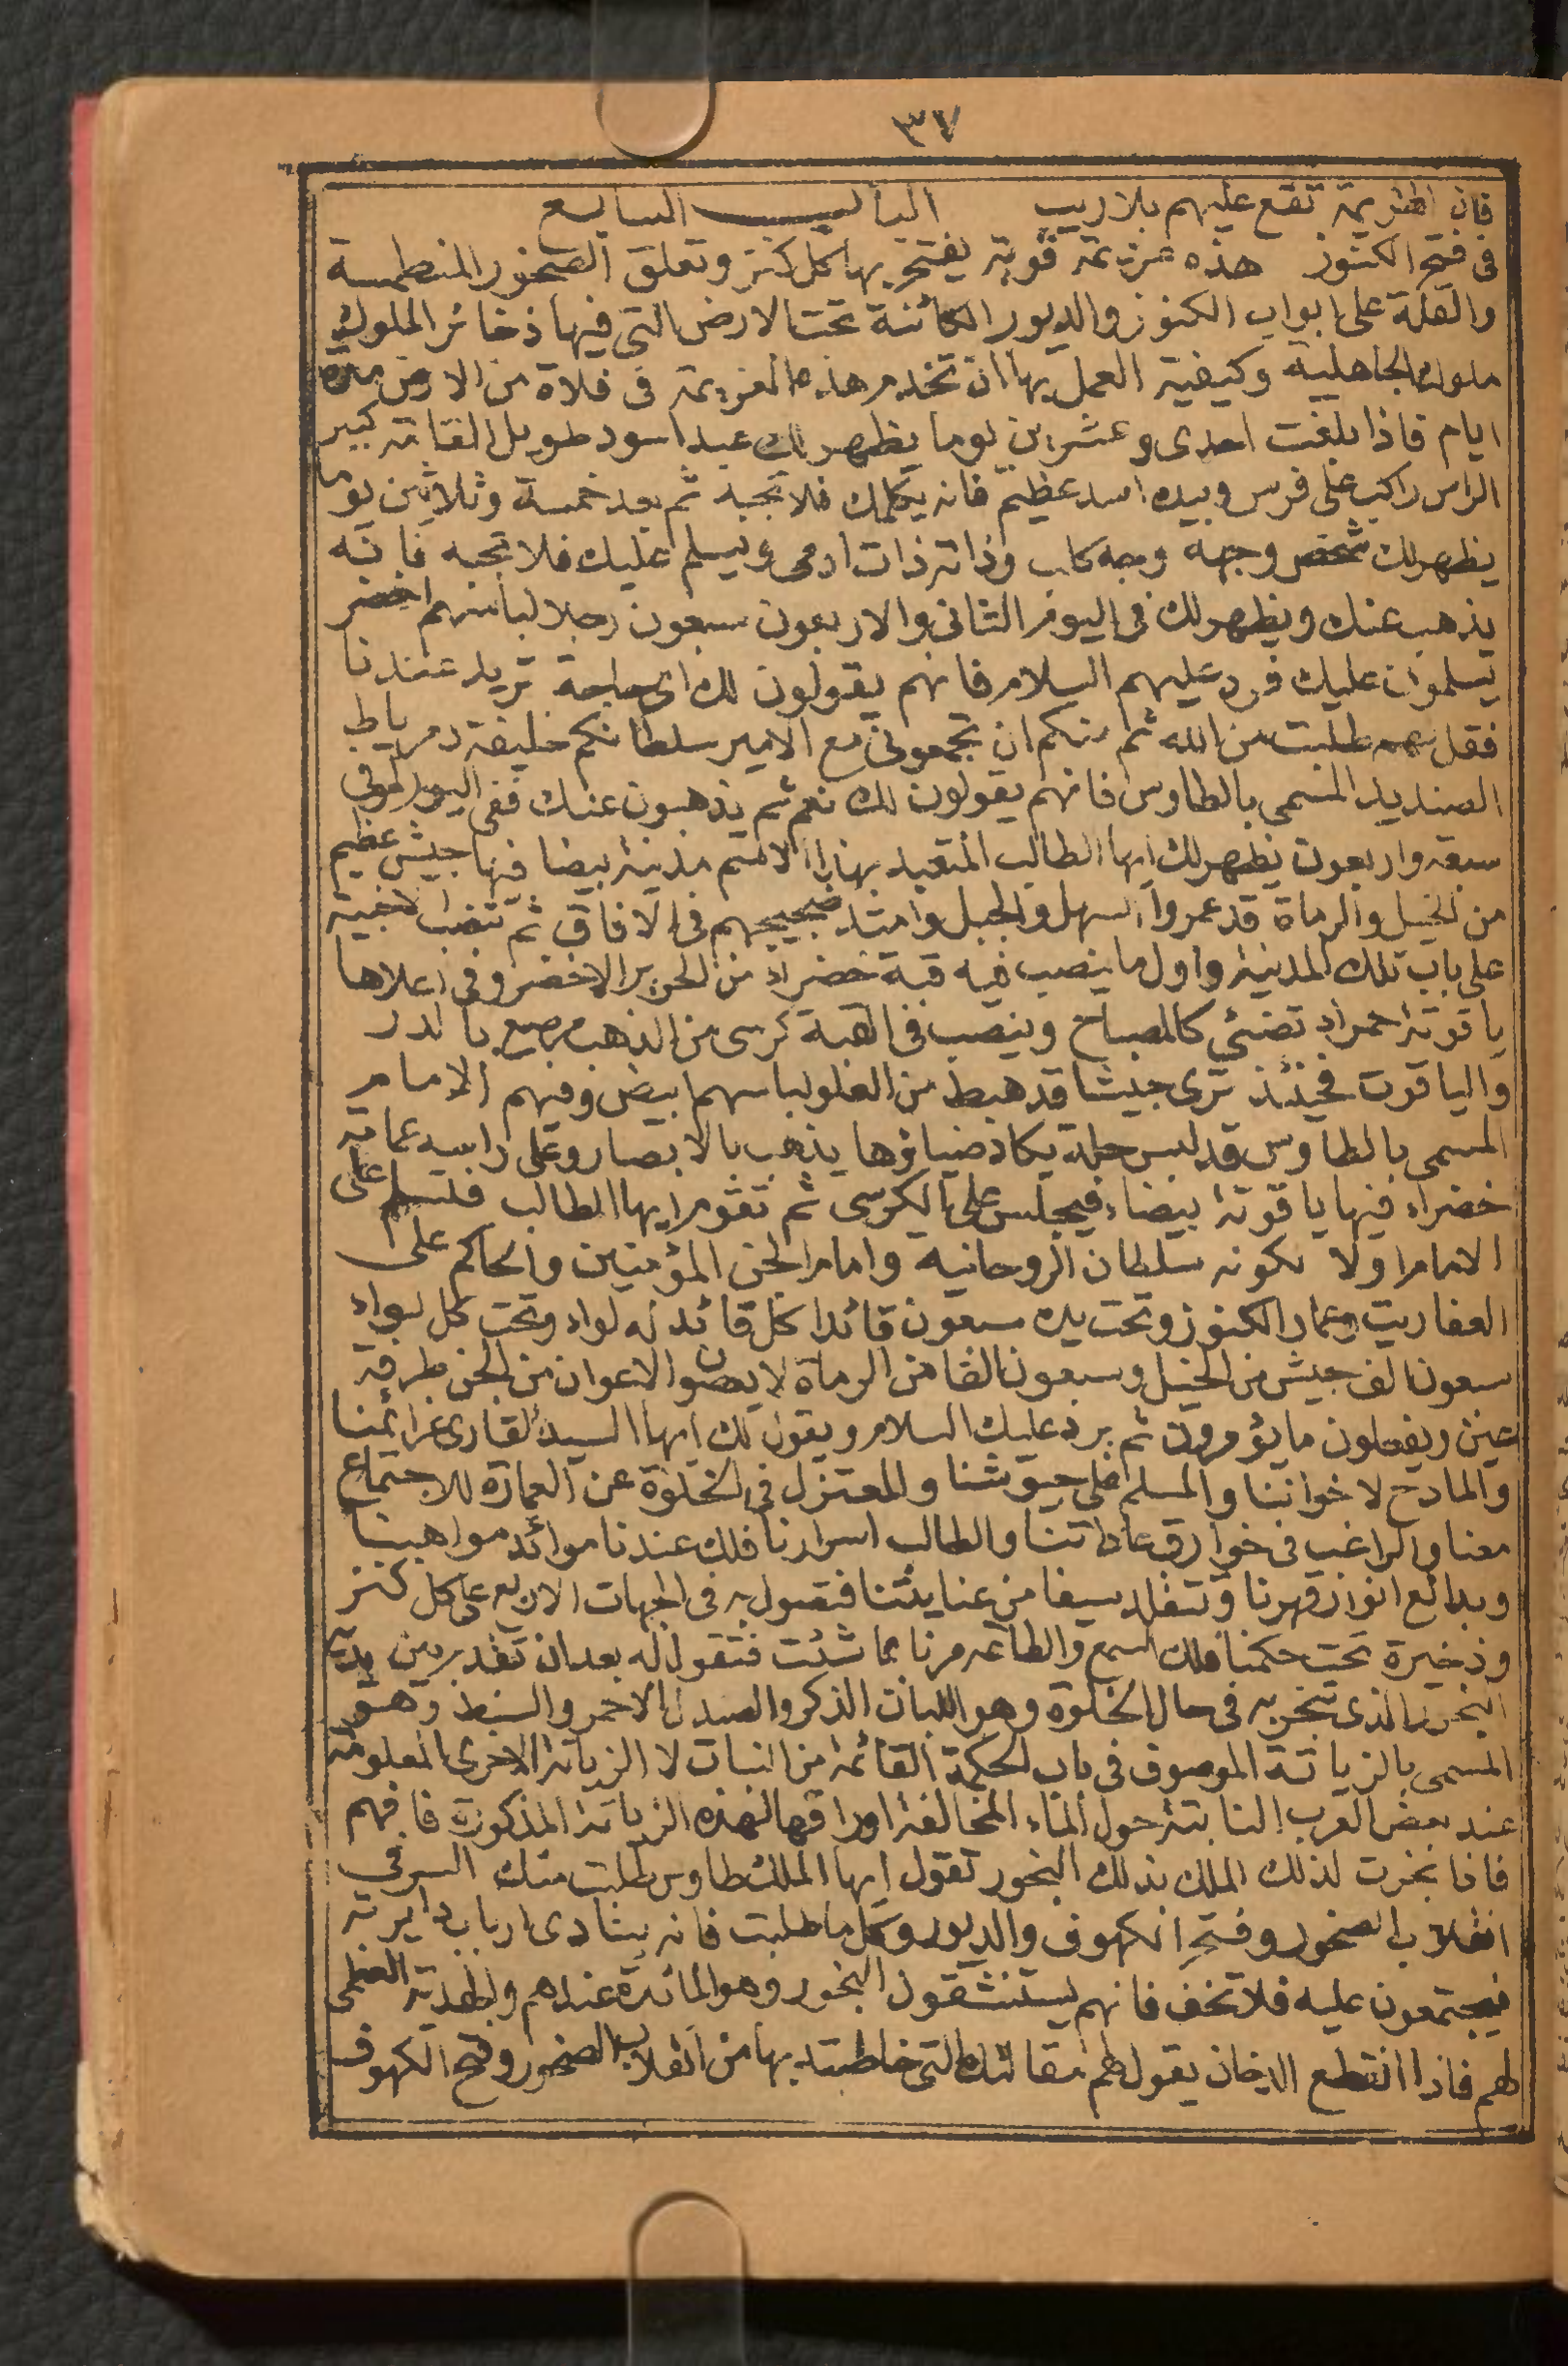 ٣٧
فان الهزيمة تقع عليهم بلا ريب البـاب السابع
فى فتح الكنوز هذه عزيمة قوية يفتح بها كل كنز وتعلق الصخور المنطمسة
والقلة على ابواب الكنوز والديور الكائنة تحت الارض التى فيها ذخائر الملوك
ملوك الجاهلية وكيفية العمل بها ان تخدم هذه العزيمة فى فلاة من الارض مدة
ايام فاذا بلغت احدى وعشرين يوما يظهر لك عبد اسود طويل القامة كبير
الراس راكب على فرس وبيده اسد عظيم فانه يكلمك فلا تجبه ثم بعد خمسة وثلاثين يوما
يظهر لك شخص وجهه وجه كلب وذاته ذات ادمى ويسلم عليك فلا تجبه فانه
يذهب عنك ويظهر لك فى اليوم الثانى والاربعون سبعون رجلا لباسهم اخضر
يسلموان عليك فرد عليهم السلام فانهم يقولون لك اى حاجة تريد عندنا
فقل لهم طلبت من الله ثم منكم ان تجمعونى مع الامير سلطانكم خليفة دمرياط
الصنديد المسمى بالطاوس فانهم يقولون لك نعم ثم يذهبون عنك ففى اليوم الموفى
سبعة واربعون يظهر لك ايها الطالب المتعبد بهذا الاسم مدينة بيضا فيها جيش عظيم
من الخيل والرماة قد عمروا السهل والجبل وامتد ضجيجهم فى الافاق ثم تنصب الاخبية
على باب تلك المدينة واول ما ينصب فيه قبة خضراء من الحرير الاخضر وفى اعلاها
ياقوتة حمراء تضئي كالمصباح وينصب فى القبة كرسى من الذهب مرصع بالدر
والياقوت فحينئذ ترى جيشا قد هبط من العلو لباسهم ابيض وفيهم الامام
المسمى بالطاوس قد لبس حلة يكاد ضياؤها يذهب بالابصار وعلى راسه عمامة
خضراء فيها ياقوتة بيضاء فيجلس على الكرسى ثم تقوم ايها الطالب فتسلم على
الامام اولا لكونه سلطان الروحانية وامام الجن المؤمنين والحاكم على
العفاريت وعمار الكنوز وتحت يده سبعون قائدا كل قائد له لواء وتحت كل لواء
سبعون الف جيش من الخيل وسبعون الفا من الرماة لا يعصوا الاعوان من الجن طرفة
عين ويفعلون ما يؤمرون ثم يرد عليك السلام ويقول لك ايها السيد القارى عزائمنا
والمادح لاخواننا والمسلم على جيوشنا والمعتزل فى الخلوة عن العمارة للاجتماع
معنا والراغب فى خوارق عاداتنا والطالب اسرارنا فلك عندنا موائد مواهبنا
وبدائع انوار قهرنا وتتقلد سيفا من عنايتنا فتصول به فى الجهات الاربع على كل كنز
وذخيرة تحت حكمنا فلك السمع والطاعه مرنا بما شئت فتقول له بعد ان تقدم بين يديه
البخور الذى تبخر به فى حال الخلوة وهو اللبان الذكر والصندل الاحمر والسنط وهو
المسمى بالزياتة الموصوف فى باب الحكمة القائمة من النبات لا الزياتة الاخرى المعلومة
عند بعض العرب النابتة حول الماء المخالفة اوراقها لهذه الزياتة المذكورة فافهم
فاذا بخرت لذلك الملك بذلك البخور تقول ايها الملك طاوس طلبت منك السر فى
انقلاب الصخور وفتح الكهوف والديور وكل ما طلبت فانه ينادى ارباب دايرته
فيجتمعون عليه فلا تخف فانهم يستنشقون البخور وهو المائدة عندهم والهدية العظمى
لهم فاذا انقطع الدخان يقول لهم مقالتك التى خاطبته بها من انقلاب الصخور وفتح الكهوف